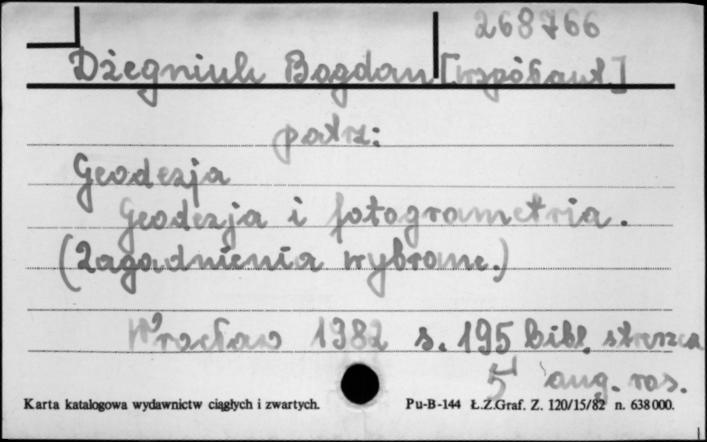 268766
Dżegniuk Bogdan [współaut.]
patrz:
Geodezja
Geodezja i fotogrametria.
(Zagadnienia wybrane.)
Wrocław 1982 s. 195 bibl. streszcz
5 ang. ros.
Karta katalogowa wydawnictw ciągłych i zwartych. Pu-B-144 Ł.Z.Graf. Z. 120/15/82 n. 638000.